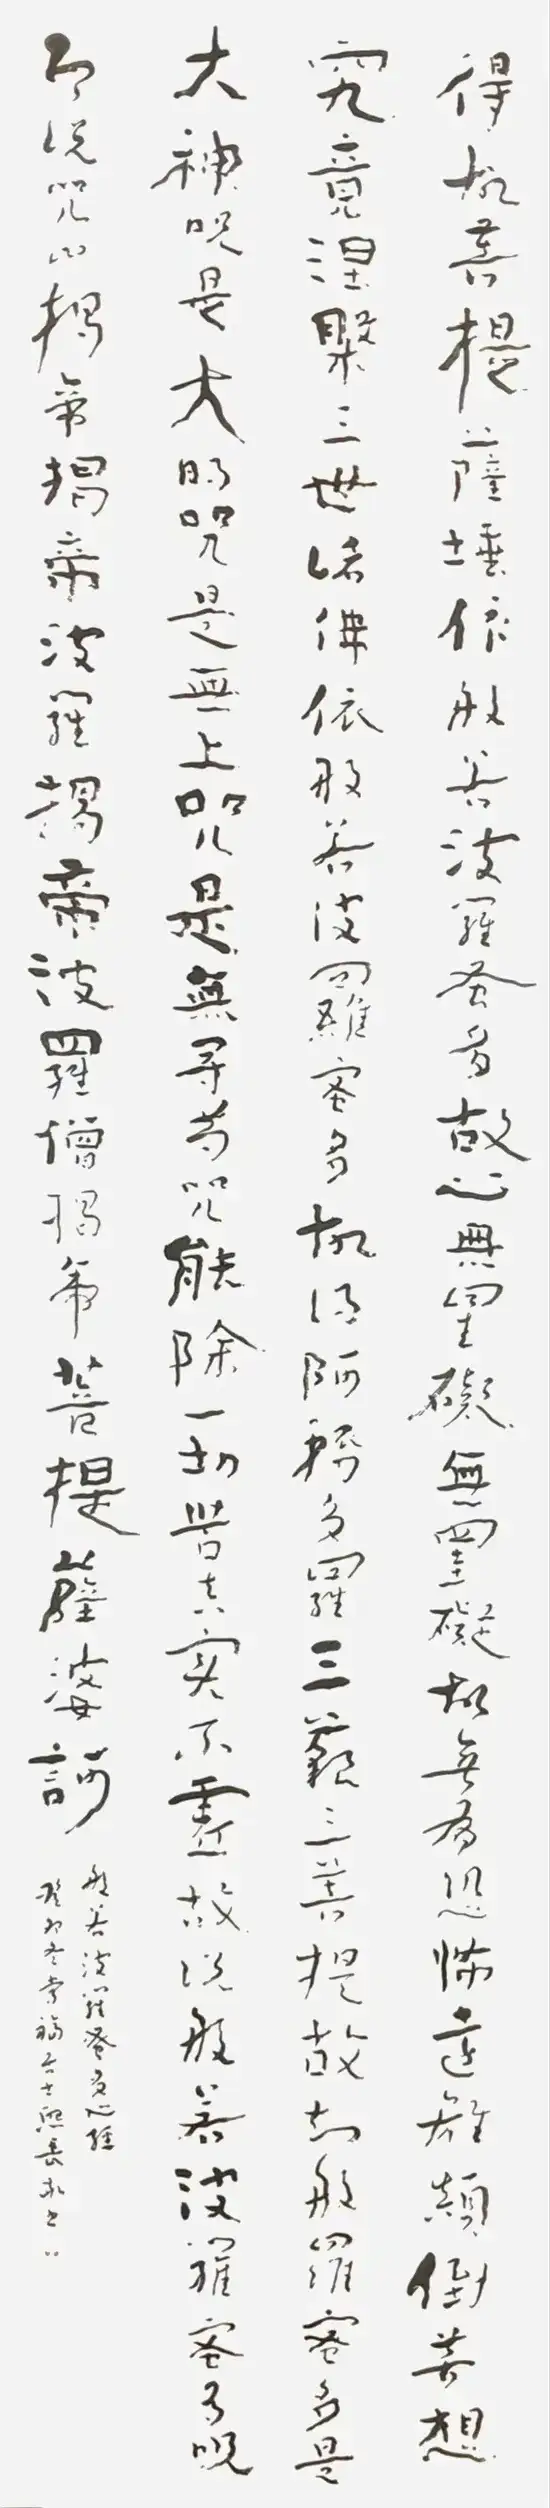 得故菩提薩埵依般若波羅蜜多故心無罣礙無罣礙故無有恐怖遠離顛倒夢想
究竟涅槃三世諸佛依般若波羅蜜多故得阿耨多羅三藐三菩提故知般羅蜜多是
大神咒是大明咒是無上咒是無等等咒能除一切苦真實不虛故說般若波羅蜜多咒
即說咒曰揭帝揭帝波羅揭帝波羅僧揭帝菩提薩婆訶
般若波羅蜜多心經
癸卯冬